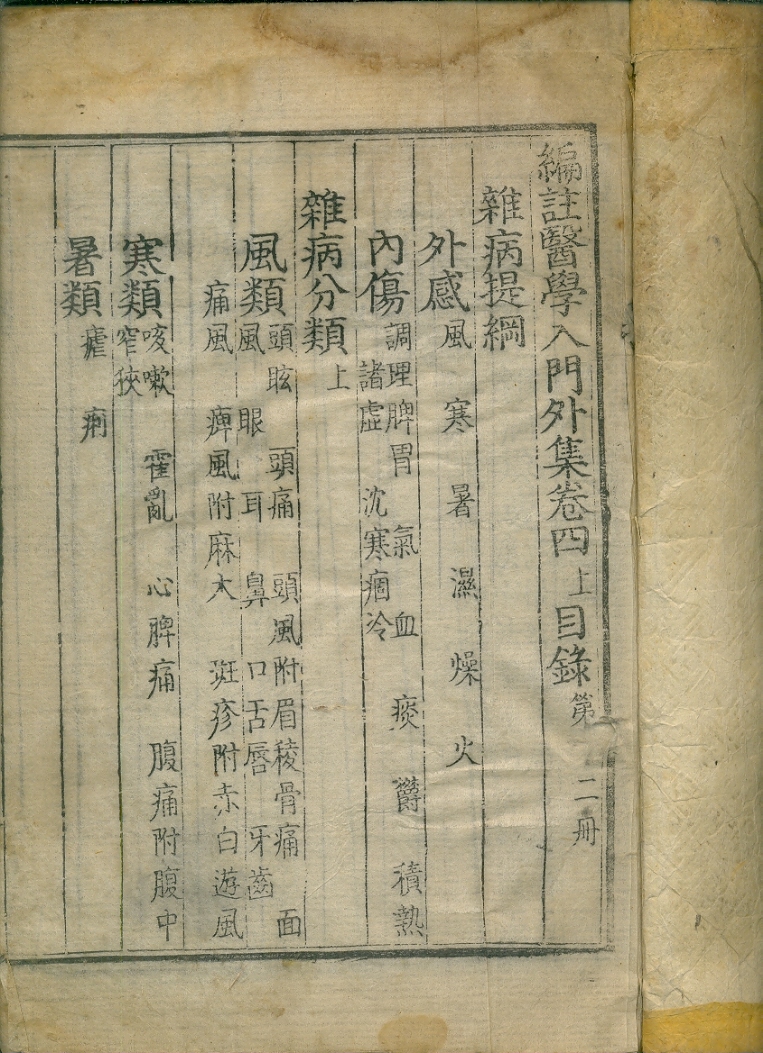 編註醫學入門外集卷四上目錄第二冊
雜病提綱
外感 風 寒 暑 濕 燥 火
內傷 調理脾胃 氣 血 痰 欝 積熱
諸虛 沈寒痼冷
雜病分類上
風類 頭眩 頭痛 頭風附眉稜骨痛 面
風 眼 耳 鼻 口舌唇 牙齒
痛風 痺風附麻木 斑疹附赤白遊風
寒類 咳嗽 霍亂 心脾痛 腹痛附腹中
窄狹
暑類 瘧 痢